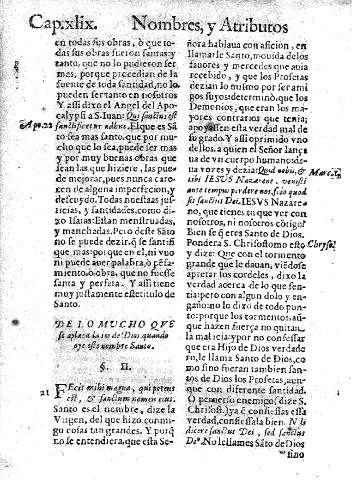 Cap.xlix. Nombres, y Atributos
en todas sus obras, ò que to-
das sus obras fueron santas: y
tanto, que no lo pudieron ser
mas, porque procedian de la
fuente de toda santidad, no lo
pueden ser tanto en nosotros
Y assi dixo el Angel del Apo-
calypsi a S. Iuan: Qui sanctus est
Apo.22 sanctificetur adhuc. El que es Sã
to sea mas santo, que por mu-
cho que lo sea, puede ser mas
y por muy buenas obras que
sean las que hiziere, las pue
de mejorar, pues nunca care-
cen de alguna imperfecion, y
descuydo. Todas nuestras jus-
ticias, y santidades, como di-
xo Isaias: Estan menstruadas,
y manchadas. Pero deste Sãto
no se puede dezir, q̃ se santifi
que mas: porque en el, ni vuo
ni puede auer palabra, ò pen-
samiento, ò obra, que no fuesse
santa y perfeta. Y assi tiene
muy justamente este titulo de
Santo.
DE LO MUCHO QVE
se aplaca la ira de Dios quando
oye este nombre Santo.
§. II.
21 FEcit mihi magna, qui potens
est, & sanctum nomen eius.
Santo es el nombre, dize la
Virgen, del que hizo conmi-
go cosas tan grandes. Y porq̃
no se entendiera, que esta Se-
ñora hablaua con aficion, en
llamarle Santo, mouida de los
fauores y mercedes que auia
recebido, y que los Profetas
dezian lo mismo por ser ami
gos suyos: determinò, que los
Demonios, que eran los ma-
yores contrarios que tenia;
apoyassen esta verdad mal de
su grado. Y assi oprimido vno
dellos, a quien el Señor lança
ua de vn cuerpo humano: de-
ua vozes y dezia: Quid nobis, &
tibi IESVS Nazarene. venisti
ante tempus perdere nos. scio quod
sis sanctus Dei. IESVS Nazare
no, que tienes tu que ver con
nosotros, ni nosotros cõtigo?
Bien se q̃ eres Santo de Dios.
Pondera S. Chrisostomo esto Chryso.
y dize: Que con el tormento
grande que le dauan, viẽdose
apretar los cordeles, dixo la
verdad acerca de lo que sen-
tia: pero con algun dolo y en-
gaño: no lo dixo de todo pun-
to: porque los tormentos, aũ-
que hazen fuerça no quitan
la malicia: y por no confessar
que era Hijo de Dios verdade
ro, le llama Santo de Dios, co
mo sino fueran tambien san-
tos de Dios los Profetas, aun-
que con diferente santidad.
O peruerso enemigo (dize S.
Chrisost.) ya q̃ confiessas essa
verdad, confiessala bien. Noli
dicere sanctus Dei, sed sanctus
Deus. No le llames Sãto de Dios
sino